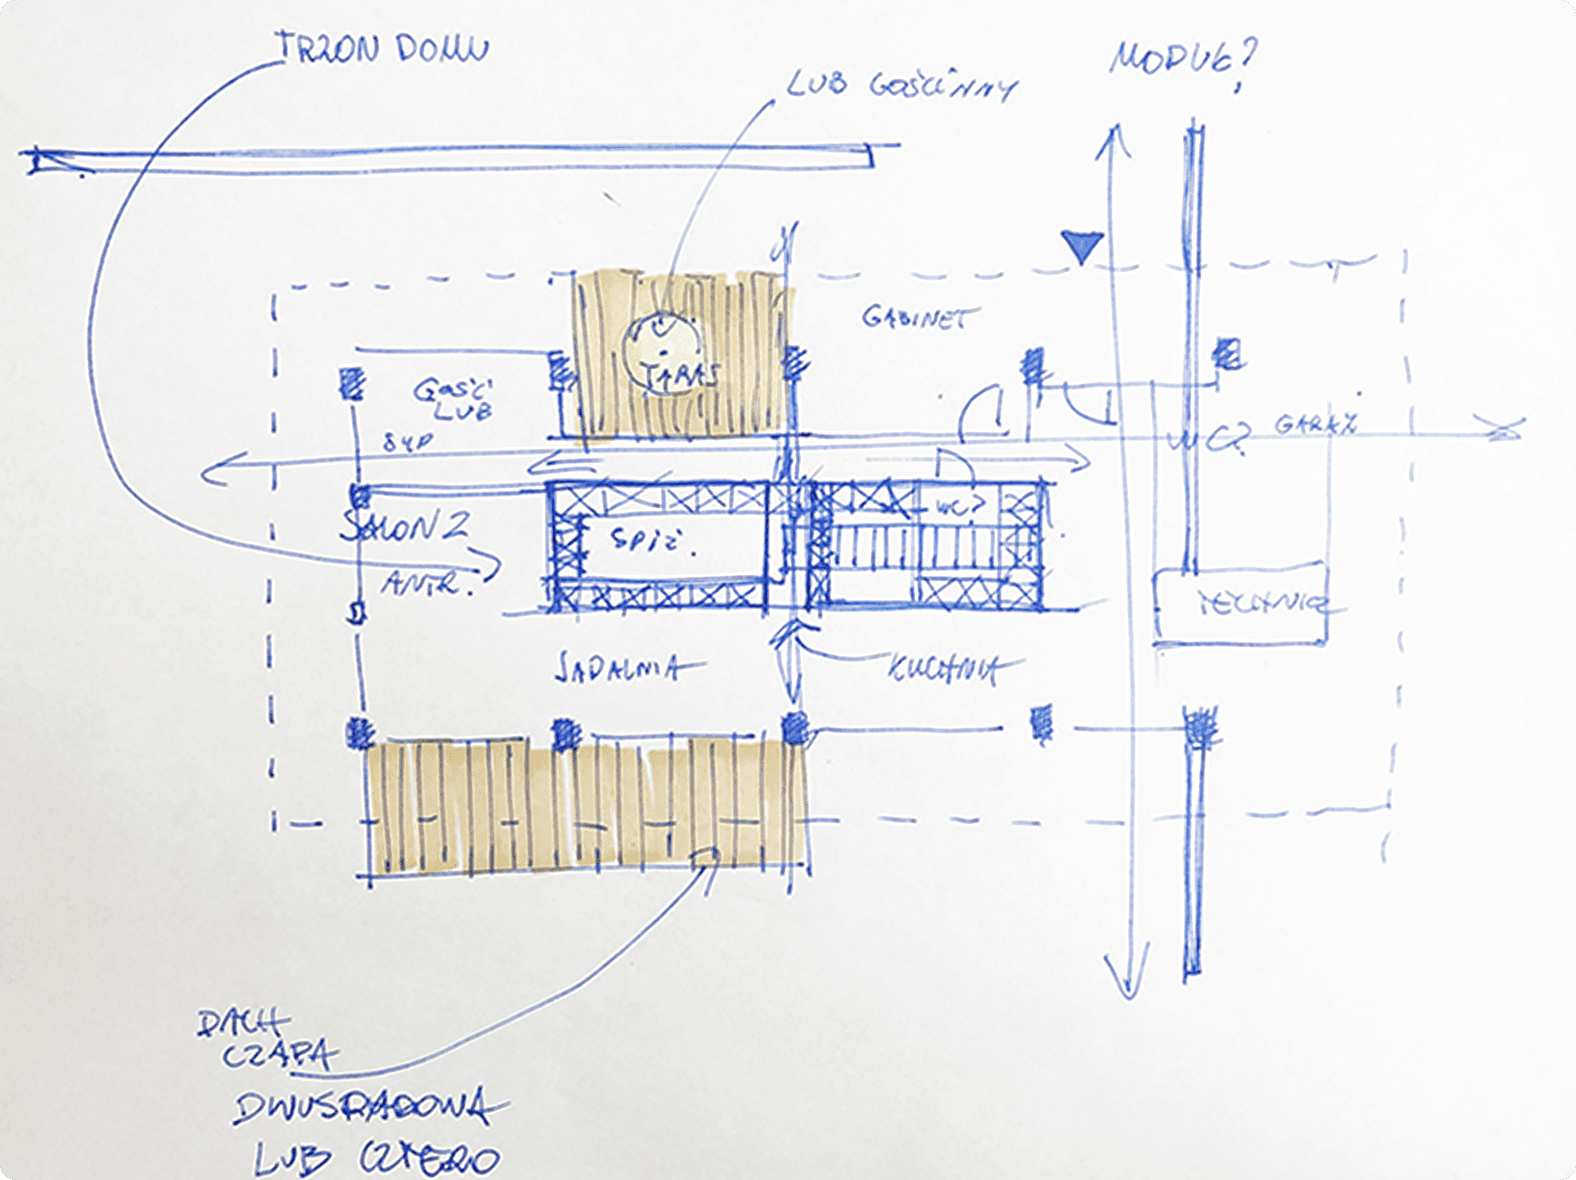 TRZON DOMU
LUB GOŚCINNY
MODUŁ?
GABINET
TARAS
GOŚCI
LUB
SYP
WC?
GARAŻ
SALON Z
ANTR.
SPIŻ.
WC?
TECHNICZ
JADALNIA
KUCHNIA
DACH
CZAPA
DWUSPADOWA
LUB CZTERO